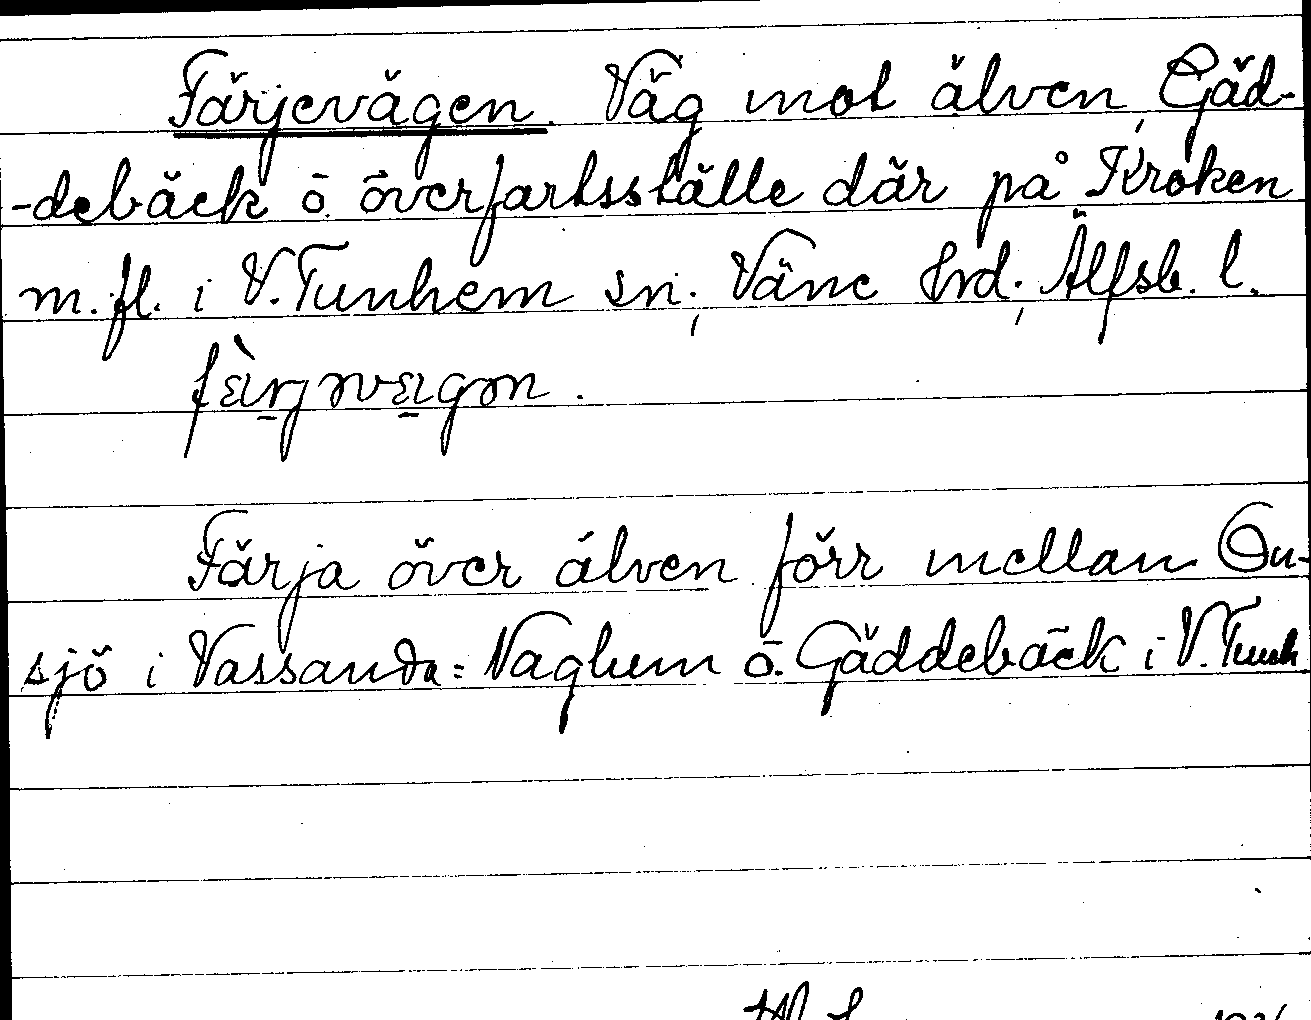 Färjevägen. Väg mot älven, Gäd-
-debäck o. överfartsställe där på Kroken
m.fl. i V.Tunhem sn, Väne hrd, Älfsb. l.
Färja över älven förr mellan On-
sjö i Vassanda=Naglum o. Gäddebäck i V.Tunh.